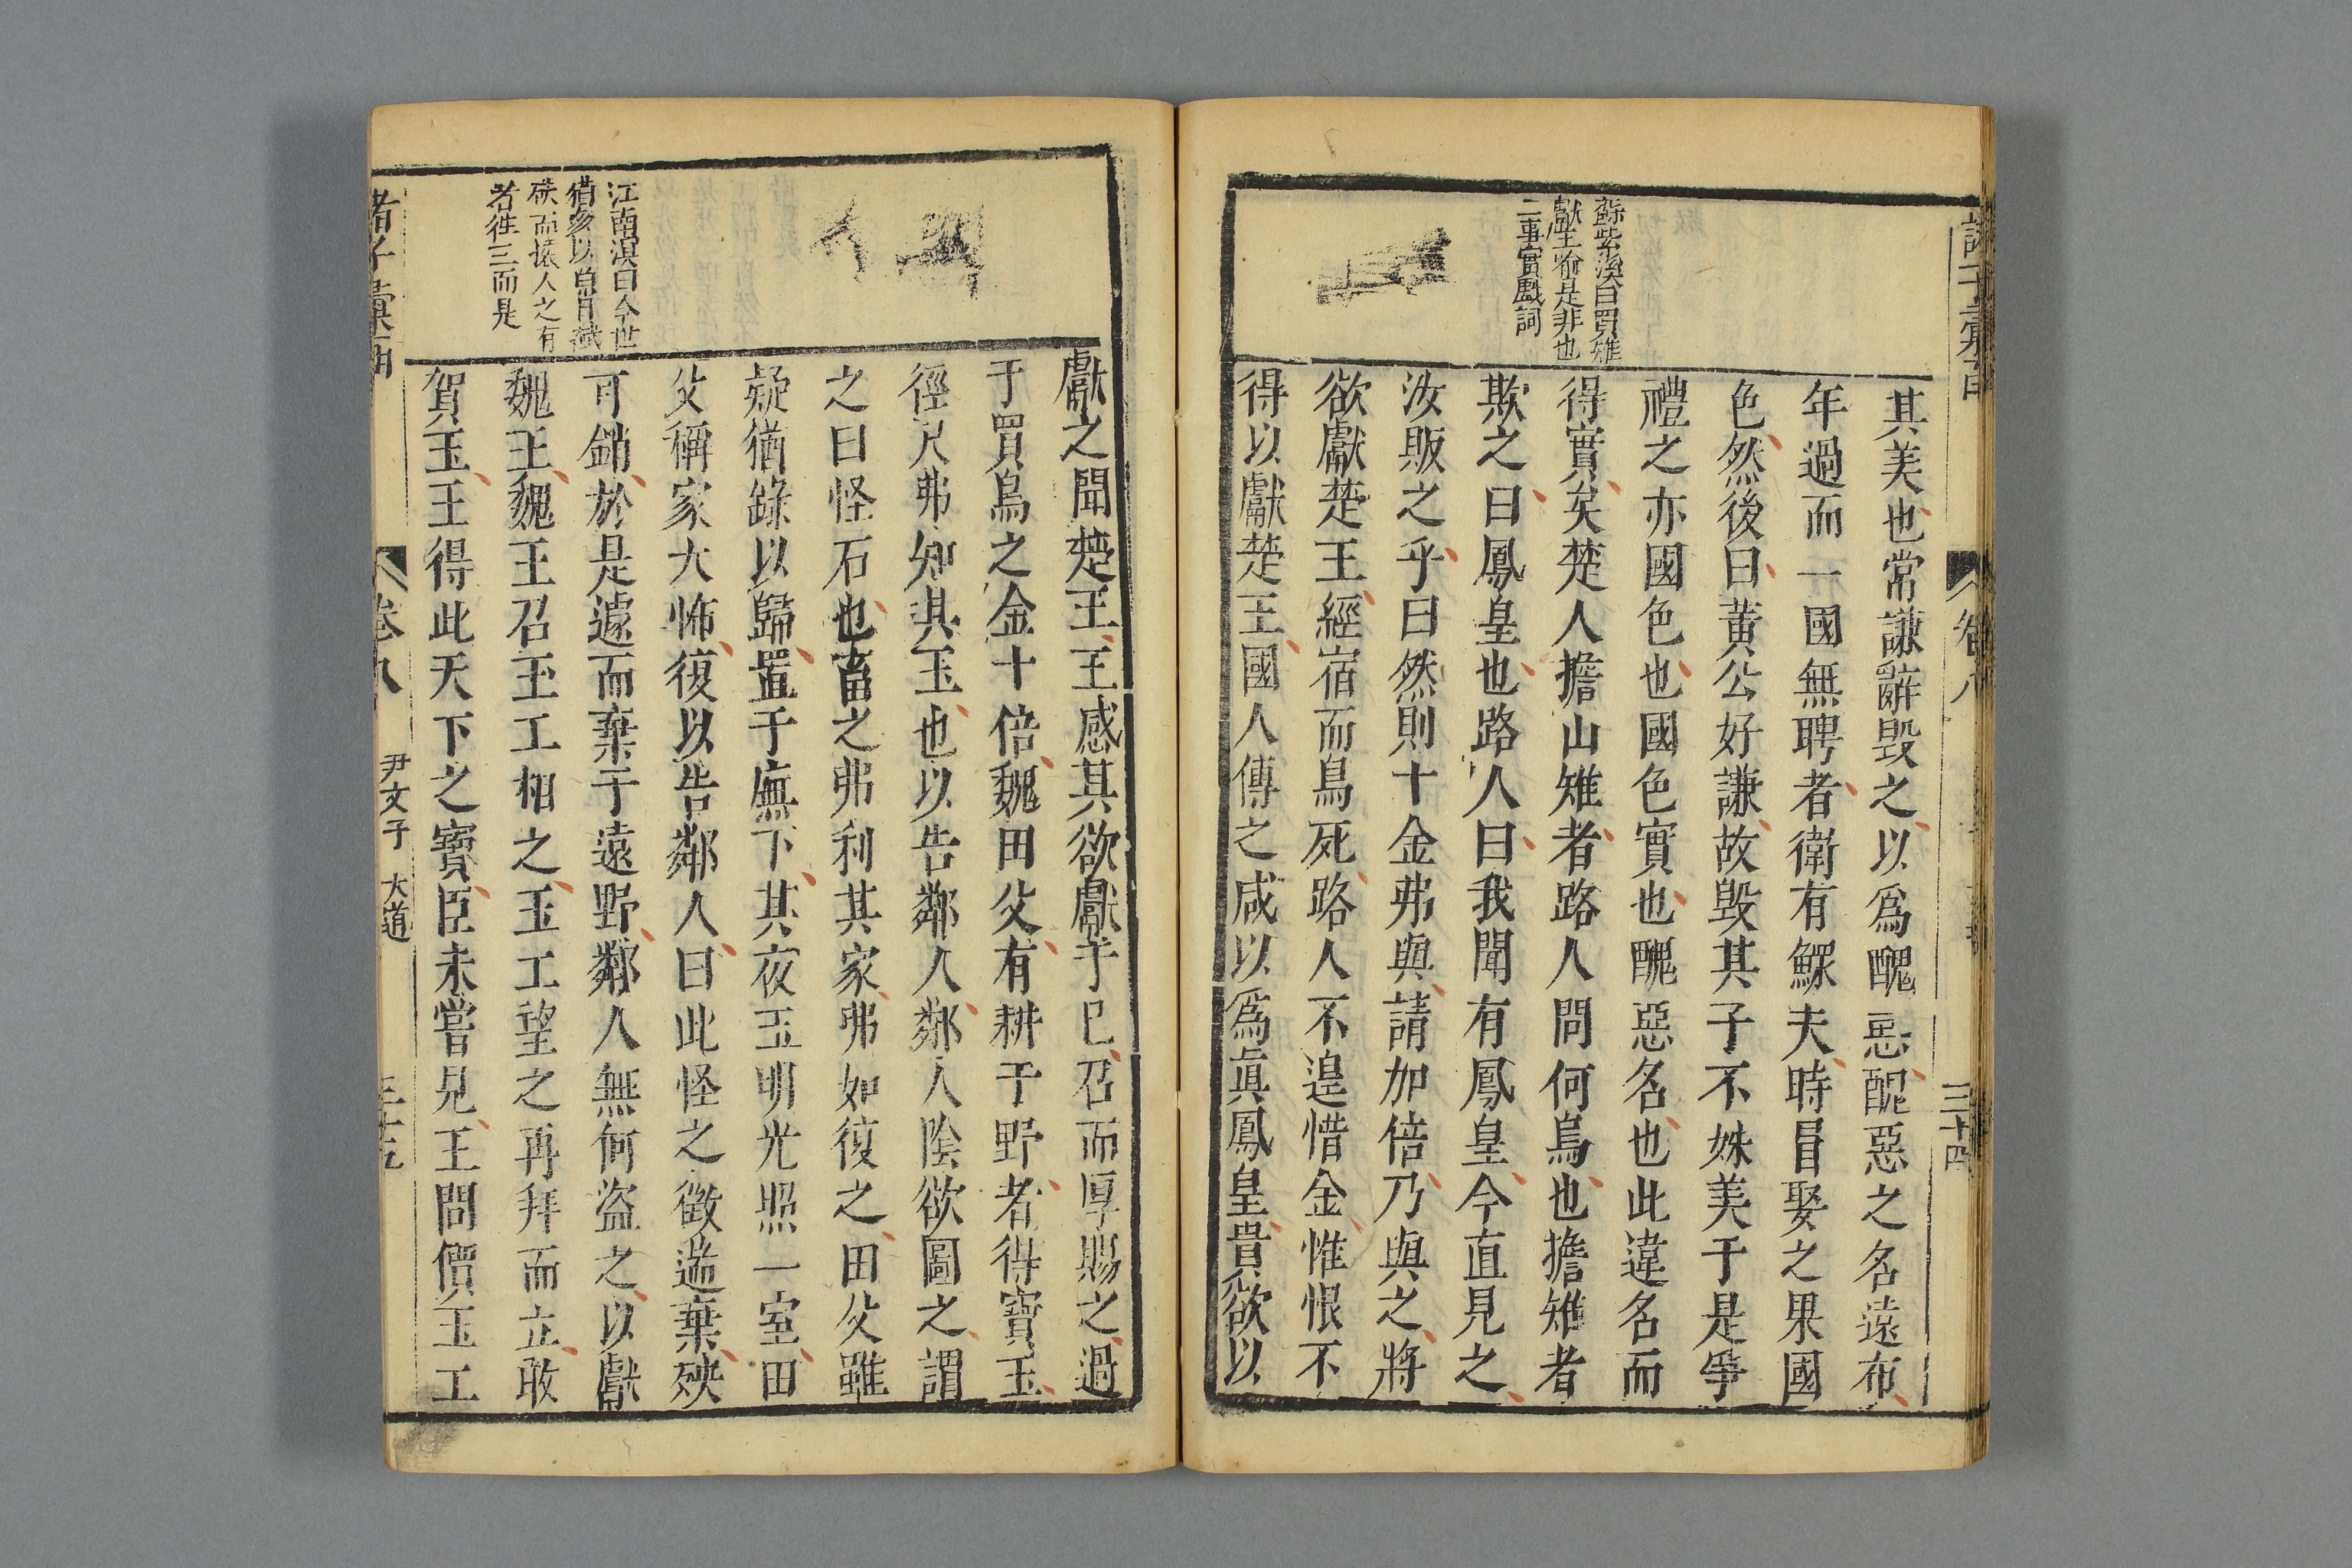 卷八
三十四
蘇紫溪曰買雉
獻王喻是非也
二事實戲詞
其美也常謙辭毀之以爲醜惡醜惡之名遠布
年過而一國無聘者衛有鰥夫時冒娶之果國
色然後曰黃公好謙故毀其子不姝美于是爭
禮之亦國色也國色實也醜惡名也此違名而
得實矣楚人擔山雉者路人問何鳥也擔雉者
欺之曰鳳皇也路人曰我聞有鳳皇今直見之
汝販之乎曰然則十金弗與請加倍乃與之將
欲獻楚王經宿而鳥死路人不遑惜金惟恨不
得以獻楚王國人傳之咸以爲眞鳳皇貴欲以
江南溟曰今世
獻之聞楚王王感其欲獻于巳召而厚賜之過
于買鳥之金十倍魏田父有耕于野者得寶玉
徑尺弗知其玉也以告鄰人鄰人陰欲圖之謂
之曰怪石也畜之弗利其家弗如復之田父雖
疑猶錄以歸置于廡下其夜玉明光照一室田
父稱家大怖復以告鄰人曰此怪之徵遄棄殃
可銷於是遽而棄于遠野鄰人無何盜之以獻
魏王魏王召玉工相之玉工望之再拜而立敢
賀玉王得此天下之寶臣未嘗見王問價玉工
卷八
尹文子 大道